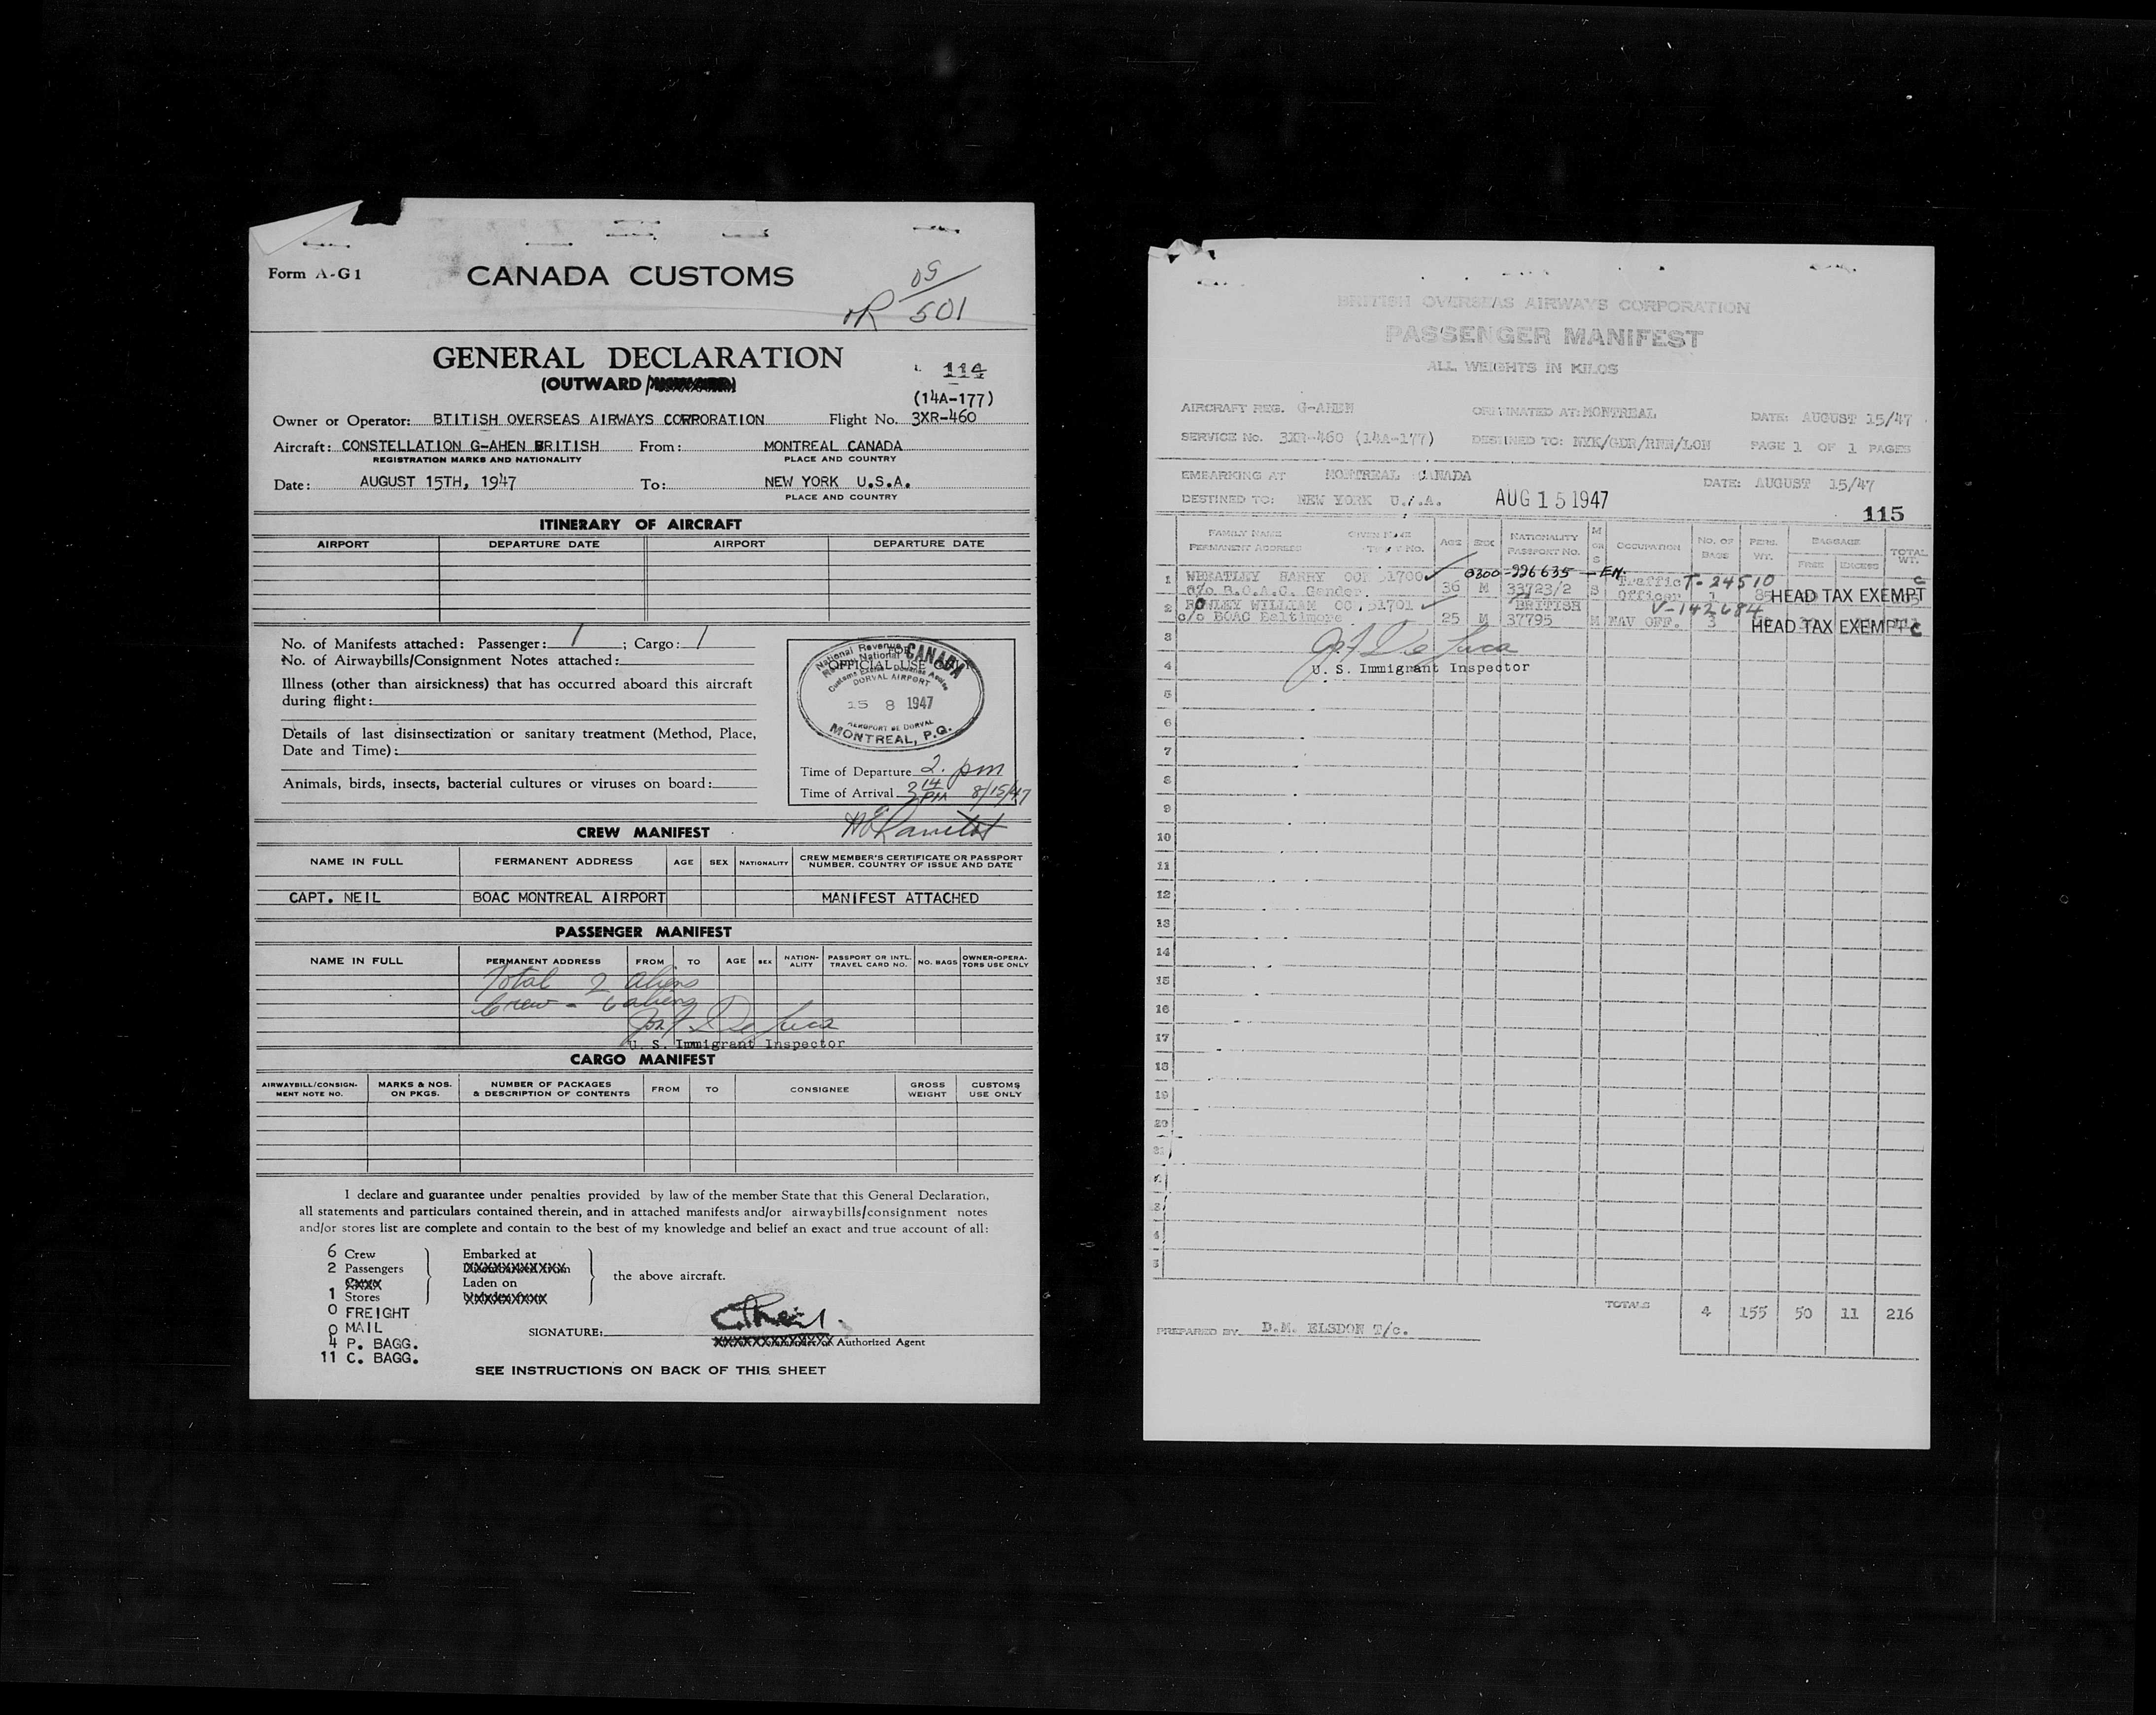 Form A-G1
CANADA CUSTOMS
501
GENERAL DECLARATION
(OUTWARD /
114
(14A-177)
Owner or Operator: BTITISH OVERSEAS AIRWAYS CORPORATION Flight No. 3XR-460
Aircraft: CONSTELLATION G-AHEN BRITISH From: MONTREAL CANADA
REGISTRATION MARKS AND NATIONALITY PLACE AND COUNTRY
Date: AUGUST 15TH, 1947 To: NEW YORK U.S.A.
PLACE AND COUNTRY
ITINERARY OF AIRCRAFT
AIRPORT DEPARTURE DATE AIRPORT DEPARTURE DATE
No. of Manifests attached: Passenger: 1 ; Cargo: 1
No. of Airwaybills/Consignment Notes attached:
Illness (other than airsickness) that has occurred aboard this aircraft
during flight:
Details of last disinsectization or sanitary treatment (Method, Place,
Date and Time):
Animals, birds, insects, bacterial cultures or viruses on board:
National Revenue
CANADA
OFFICIAL USE
DORVAL AIRPORT
15 8 1947
AEROPORT DE DORVAL
MONTREAL, P.Q.
Time of Departure 2. pm
Time of Arrival 3 14 PM 8/15/47
CREW MANIFEST
NAME IN FULL PERMANENT ADDRESS AGE SEX NATIONALITY CREW MEMBER'S CERTIFICATE OR PASSPORT
NUMBER. COUNTRY OF ISSUE AND DATE
CAPT. NEIL BOAC MONTREAL AIRPORT MANIFEST ATTACHED
PASSENGER MANIFEST
NAME IN FULL PERMANENT ADDRESS FROM TO AGE SEX NATION-
ALITY PASSPORT OR INTL.
TRAVEL CARD NO. NO. BAGS OWNER-OPERA-
TORS USE ONLY
Total 2 aliens
Crew - 6 aliens
Jos. F. De Luca
U. S. Immigrant Inspector
CARGO MANIFEST
AIRWAYBILL/CONSIGN-
MENT NOTE NO. MARKS & NOS.
ON PKGS. NUMBER OF PACKAGES
& DESCRIPTION OF CONTENTS FROM TO CONSIGNEE GROSS
WEIGHT CUSTOMS
USE ONLY
I declare and guarantee under penalties provided by law of the member State that this General Declaration,
all statements and particulars contained therein, and in attached manifests and/or airwaybills/consignment notes
and/or stores list are complete and contain to the best of my knowledge and belief an exact and true account of all:
6 Crew Embarked at
2 Passengers
Laden on the above aircraft.
1 Stores
0 FREIGHT
0 MAIL
4 P. BAGG.
11 C. BAGG.
SIGNATURE:
Authorized Agent
SEE INSTRUCTIONS ON BACK OF THIS SHEET
BRITISH OVERSEAS AIRWAYS CORPORATION
PASSENGER MANIFEST
ALL WEIGHTS IN KILOS
AIRCRAFT REG. G-AHEN ORIGINATED AT: MONTREAL DATE: AUGUST 15/47
SERVICE No. 3XR-460 (14A-177) DESTINED TO: NYK/GDR/RNN/LON PAGE 1 OF 1 PAGES
EMBARKING AT MONTREAL CANADA DATE: AUGUST 15/47
DESTINED TO: NEW YORK U.S.A. AUG 15 1947
115
FAMILY NAME GIVEN NAME AGE SEX NATIONALITY M OR S OCCUPATION NO. OF BAGS PERS. WT. BAGGAGE TOTAL WT.
PERMANENT ADDRESS TICKET No. PASSPORT No. FREE EXCESS
0300-996635 - EN.
1 WHEATLEY HARRY OCC 51700 Traffic T-24510 C
c/o B.O.A.C. Gander. 36 M 33723/2 S Officer 1 85 HEAD TAX EXEMPT
2 ROWLEY WILLIAM OC 51701 BRITISH V-142684
c/o BOAC Baltimore 25 M 37795 M NAV OFF. 3 HEAD TAX EXEMPT C
3
Jos. F. De Luca
4 U. S. Immigrant Inspector
5
6
7
8
9
10
11
12
13
14
15
16
17
18
19
20
TOTALS 4 155 50 11 216
PREPARED BY D.M. ELSDON T/c.